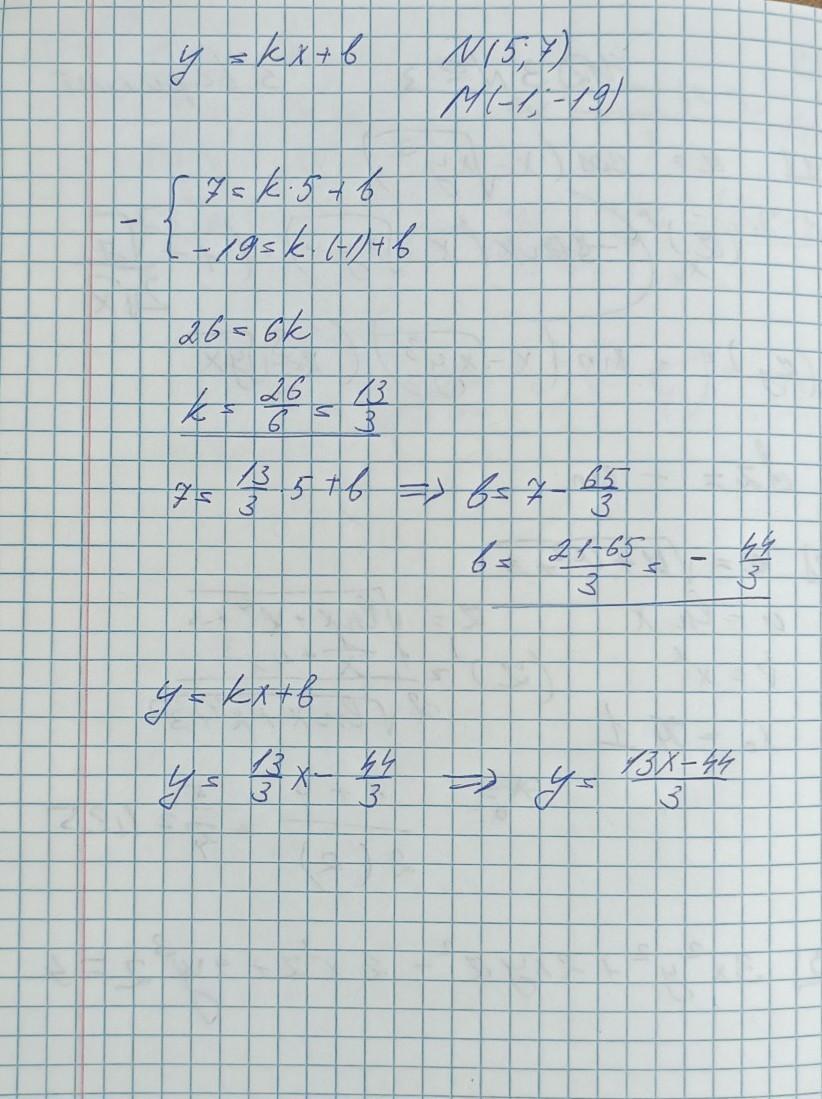 y = kx + b N(5; 7)
M(-1; -19)
- { 7 = k·5 + b
-19 = k·(-1) + b
26 = 6k
k = 26/6 = 13/3
7 = 13/3 · 5 + b ⇒ b = 7 - 65/3
b = (21-65)/3 = - 44/3
y = kx + b
y = 13/3 x - 44/3 ⇒ y = (13x - 44)/3